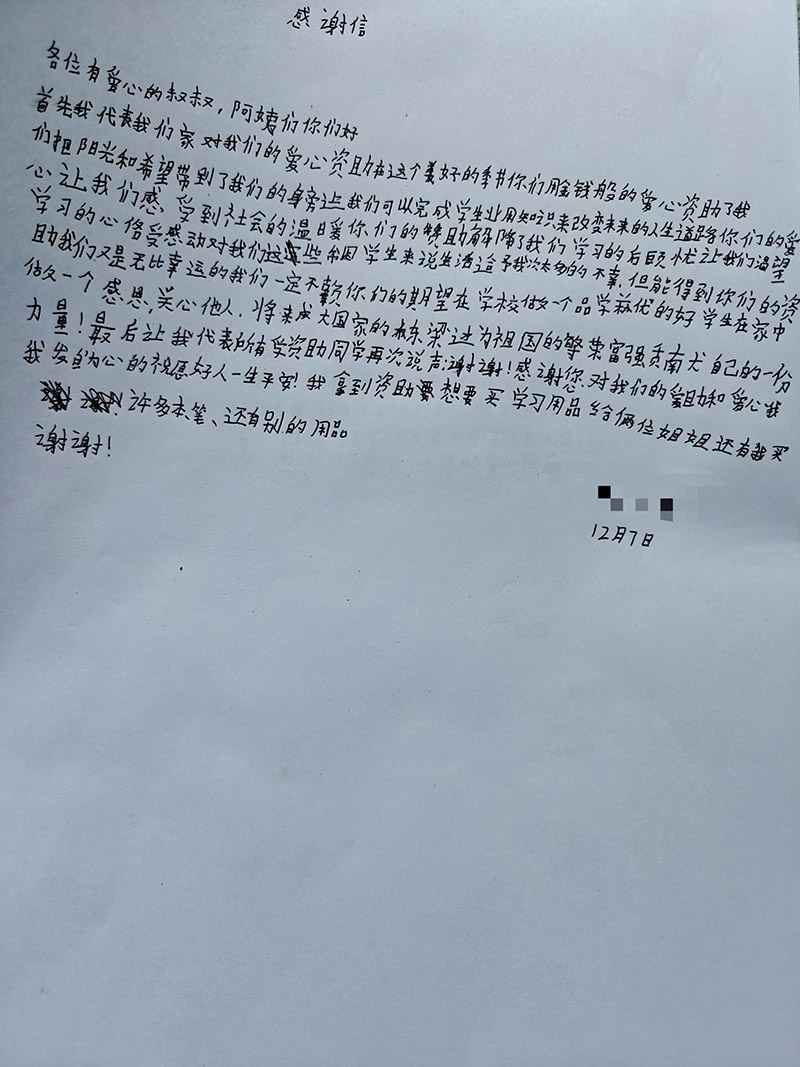 感谢信
各位有爱心的叔叔，阿姨们你们好
首先我代表我们家对我们的爱心资助在这个美好的季节你们用金钱般的爱心资助了我
们把阳光和希望带到了我们的身旁让我们可以完成学生业用知识来改变未来的人生道路你们的爱
心让我们感受到社会的温暖你们的赞助解降了我们学习的后顾忧让我们渴望
学习的心倍受感动对我们这些困学生来说生活造予我次太多的不幸,但能得到你们的资
助我们又是无比幸运的我们一定不赖你们的期望在学校做一个品学兼优的好学生在家中
做一个感恩,关心他人.将来成大国家的栋梁过为祖国的繁荣富强贡南犬自己的一份
力量!最后让我代表所有受资助同学再次说声:谢谢!感谢您对我们的爱助和爱心我
我发自为心的祝愿好人一生平安!我拿到资助要想要买学习用品给俩位姐姐还有我买
许多本笔、还有别的用品
谢谢!
12月7日